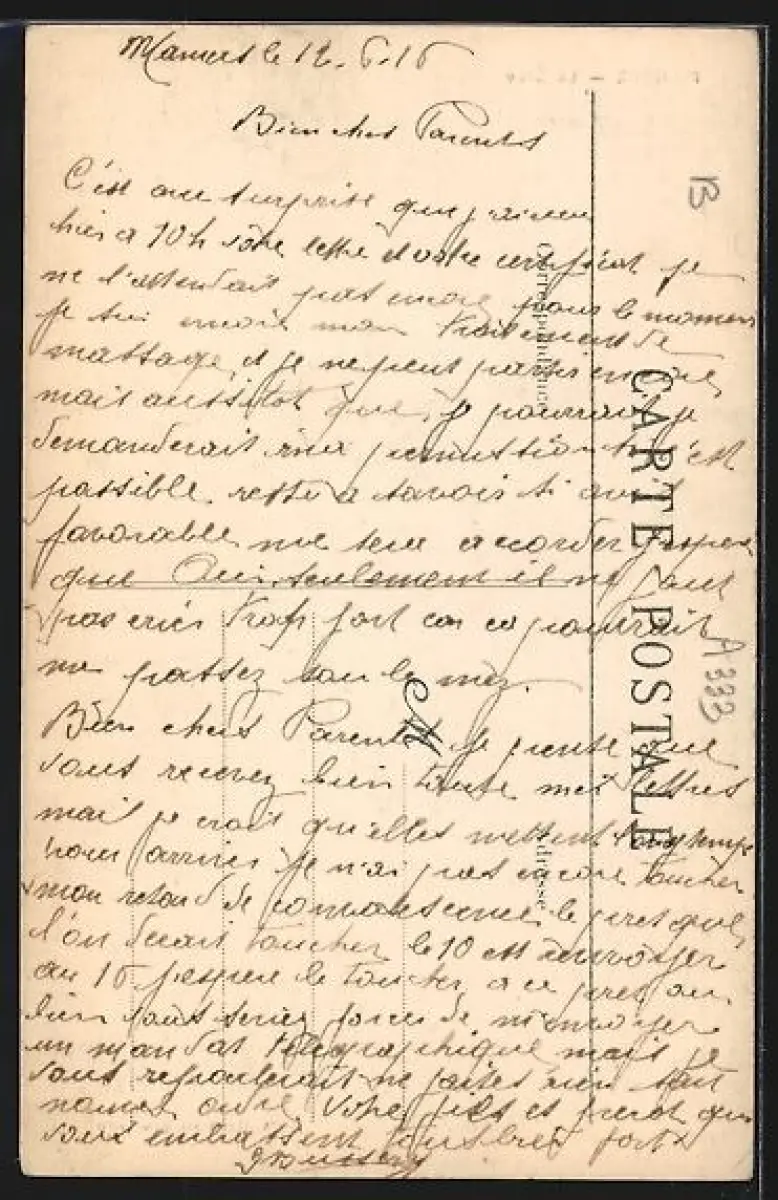 Mamers le 12.6.16
Bien chers Parents
C'est avec surprise que j'ai
hier a 10h votre lettre et votre certificat je
ne l'attendait pas encore pour le moment
je sui encore mon traitement de
massage et je ne peut partir encore
mais aussitot que je pourrait je
demanderait une permission si c'est
possible reste a savoir si avis
favorable me sera accorder
que Oui seulement il ne faut
pas crier trop fort car ce pourrait
me passez sou le nez.
Bien chers Parents je pense que
vous recevez bien toute mes lettres
mai je croit qu'elles mettent longtemps
pour arriver je n'ai pas encore toucher
mon retard de le pret que
l'on devait toucher le 10 est renvoyer
au 15 j'espere le toucher a ce pret ou
bien vous seriez forcer de m'envoyer
un mandat télégraphique mais je
vous ne faites rien
votre fils et qui
vous embrassent tous bien fort
CARTE POSTALE
Correspondance
Adresse
B
A 333
M